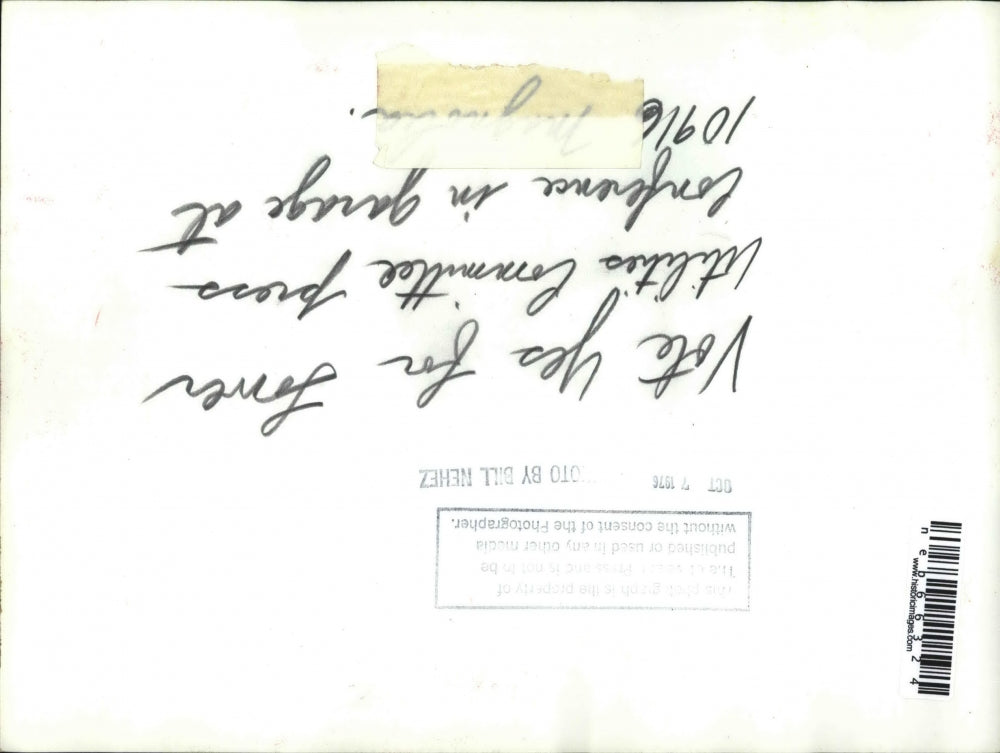 This photograph is the property of
The Press and is not to be
published or used in any other media
without the consent of the Photographer.
OCT 7 1976 OTO BY BILL NEHEZ
Vote Yes for Lower
Utilities Committee press
Conference in garage at
10916 Magnolia.
neb66324
www.historicimages.com